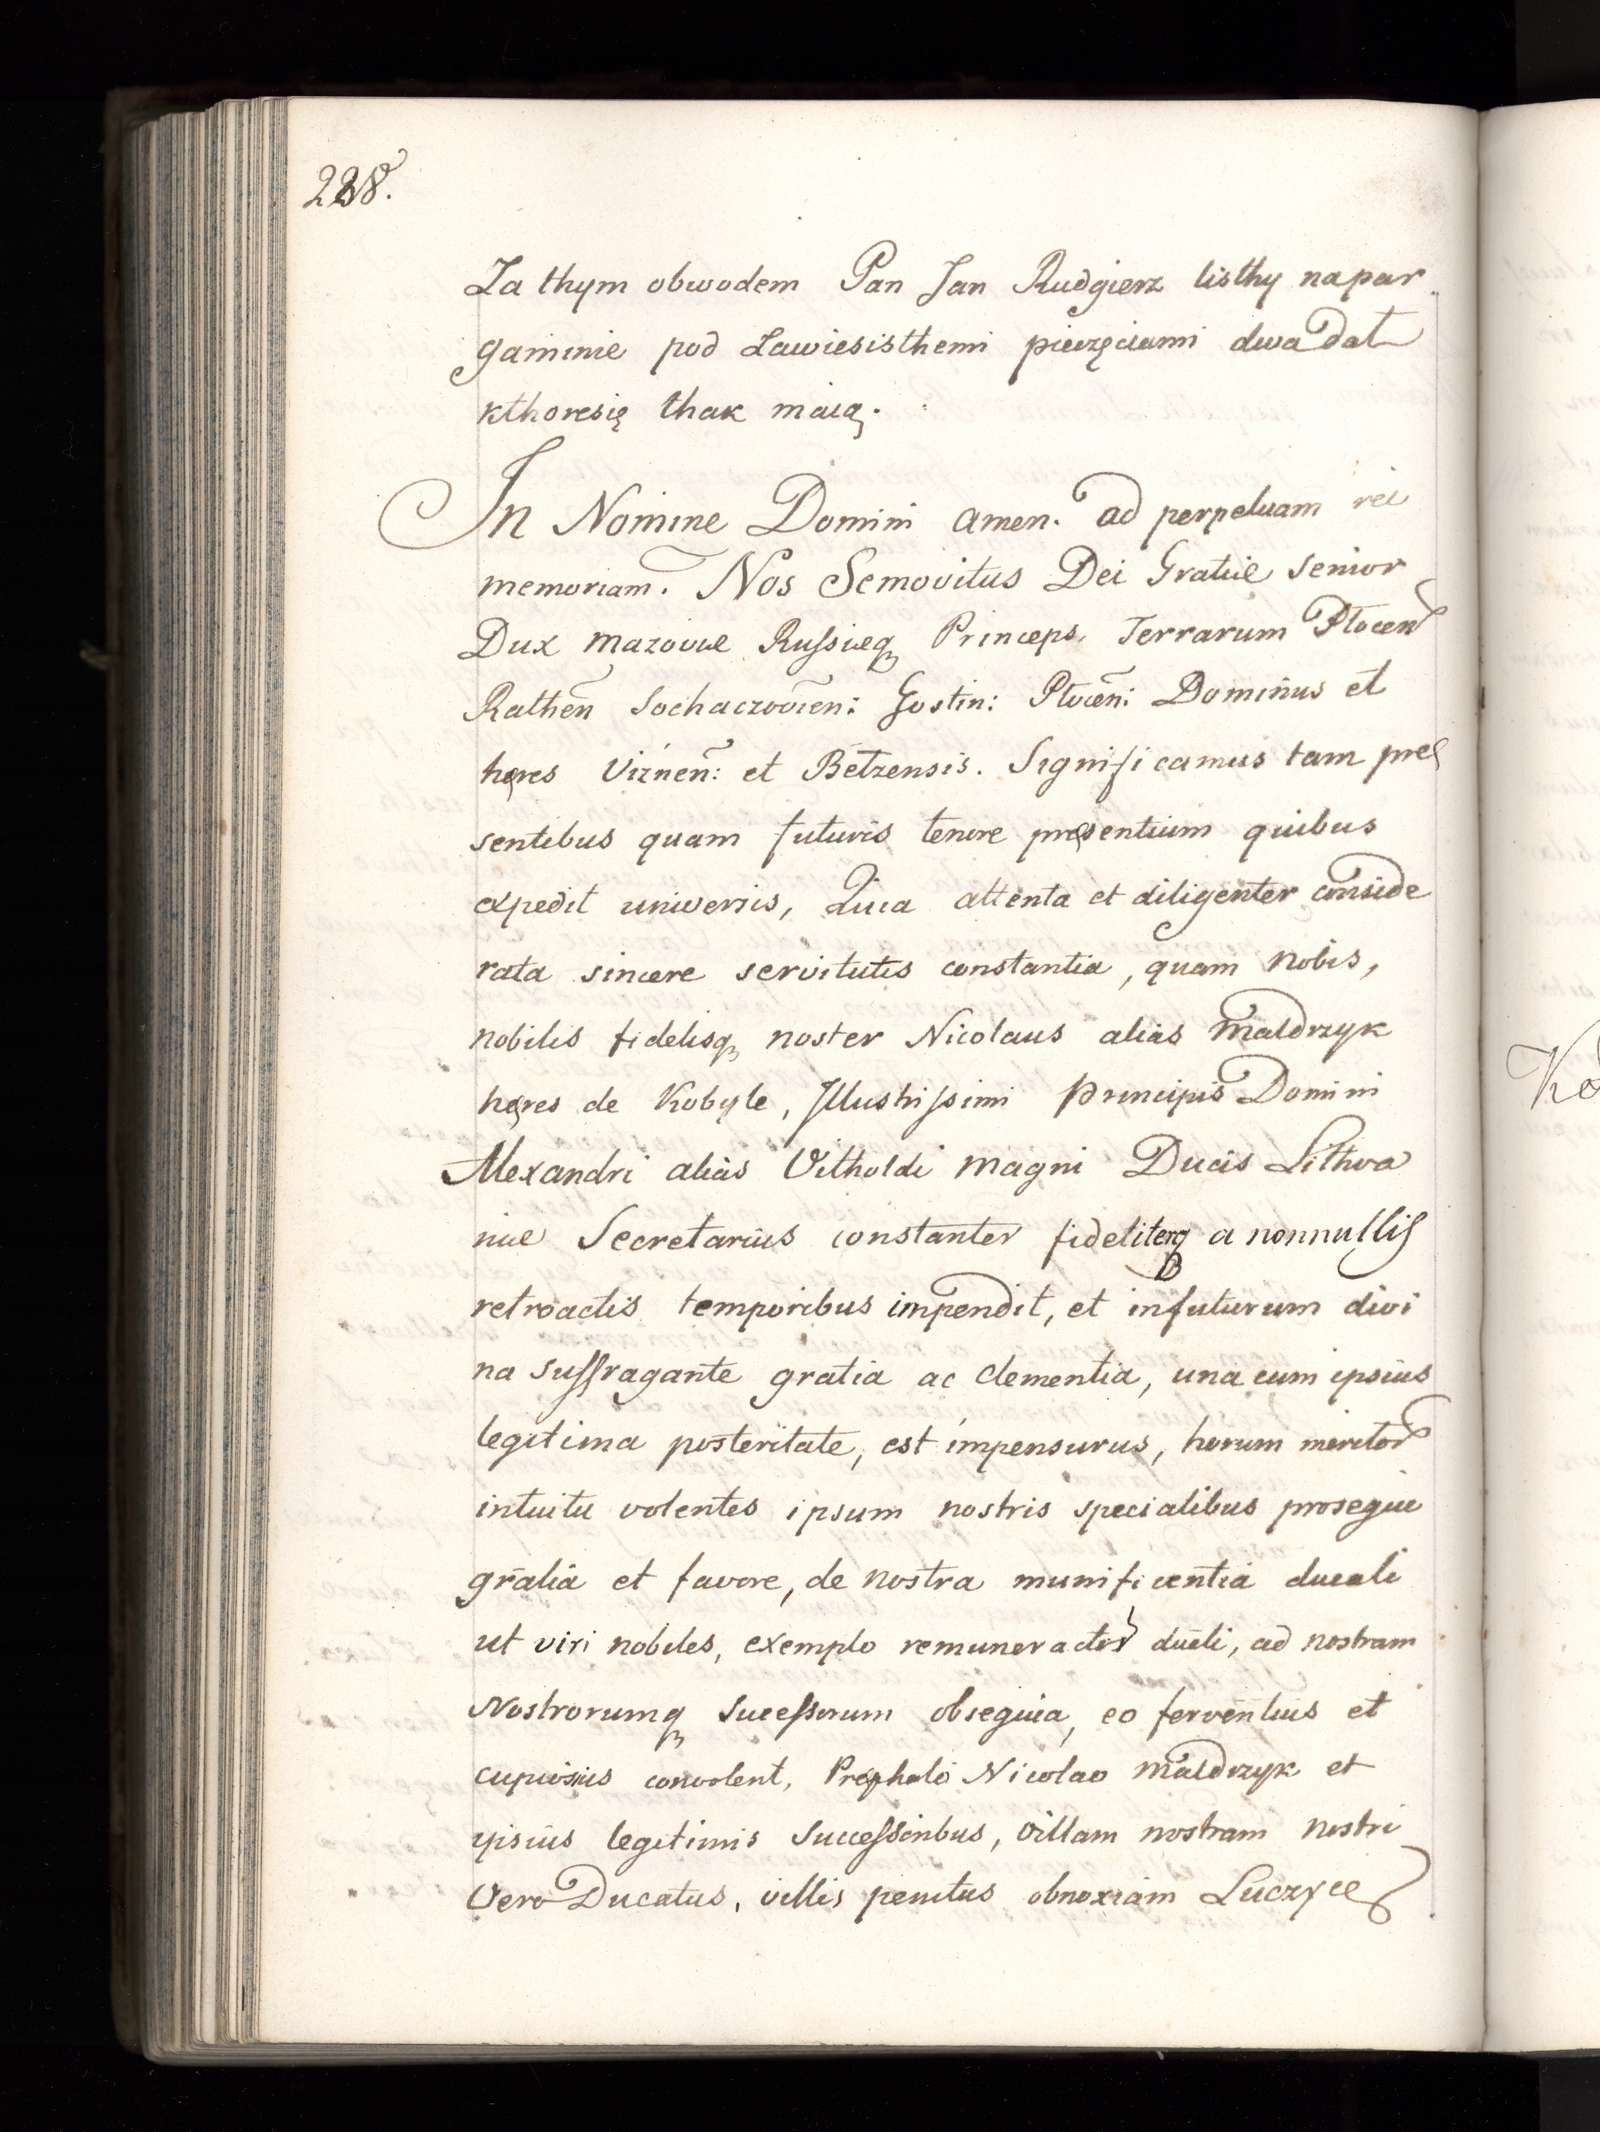 228.
Za thym obwodem Pan Jan Rudgierz listhy napar
gaminie pod Zawiesisthemi pieczęciami dwa dał
kthoresię thak maią.
In Nomine Domini amen. ad perpetuam rei
memoriam. Nos Semovitus Dei Gratiæ senior
Dux Mazoviæ Rufsiæq Princeps, Terrarum Płocen
Rathen̄ Sochaczovien̄: Gostin: Płocen̄: Dominus et
hęres Viznen̄: et Bełzensis. Significamus tam præ
sentibus quam futuris tenore pręsentium quibus
expedit universis, Quia attenta et diligenter conside
rata sincere servitutis constantia, quam nobis,
nobilis fidelisq noster Nicolaus alias Małdrzyk
hęres de Kobyle, Illustrifsimi Principis Domini
Alexandri alias Vitholdi magni Ducis Lithva
niæ Secretarius constanter fideliterq a nonnullis
retroactis temporibus impendit, et infuturum divi
na suffragante gratia ac clementia, una cum ipsius
legitima posteritate, est impensurus, horum meritor
intuitu volentes ipsum nostris specialibus prosequi
gratia et favore, de nostra munificentia ducali
ut viri nobiles, exemplo remunerator ducli, ad nostram
Nostrorumq Succefsorum obsequia, eo ferventius et
cupiosius convolent, Pręphato Nicolao Małdrzyk et
ipsius legitimis Succefsoribus, villam nostram nostri
vero Ducatus, villis penitus obnoxiam Luczyce